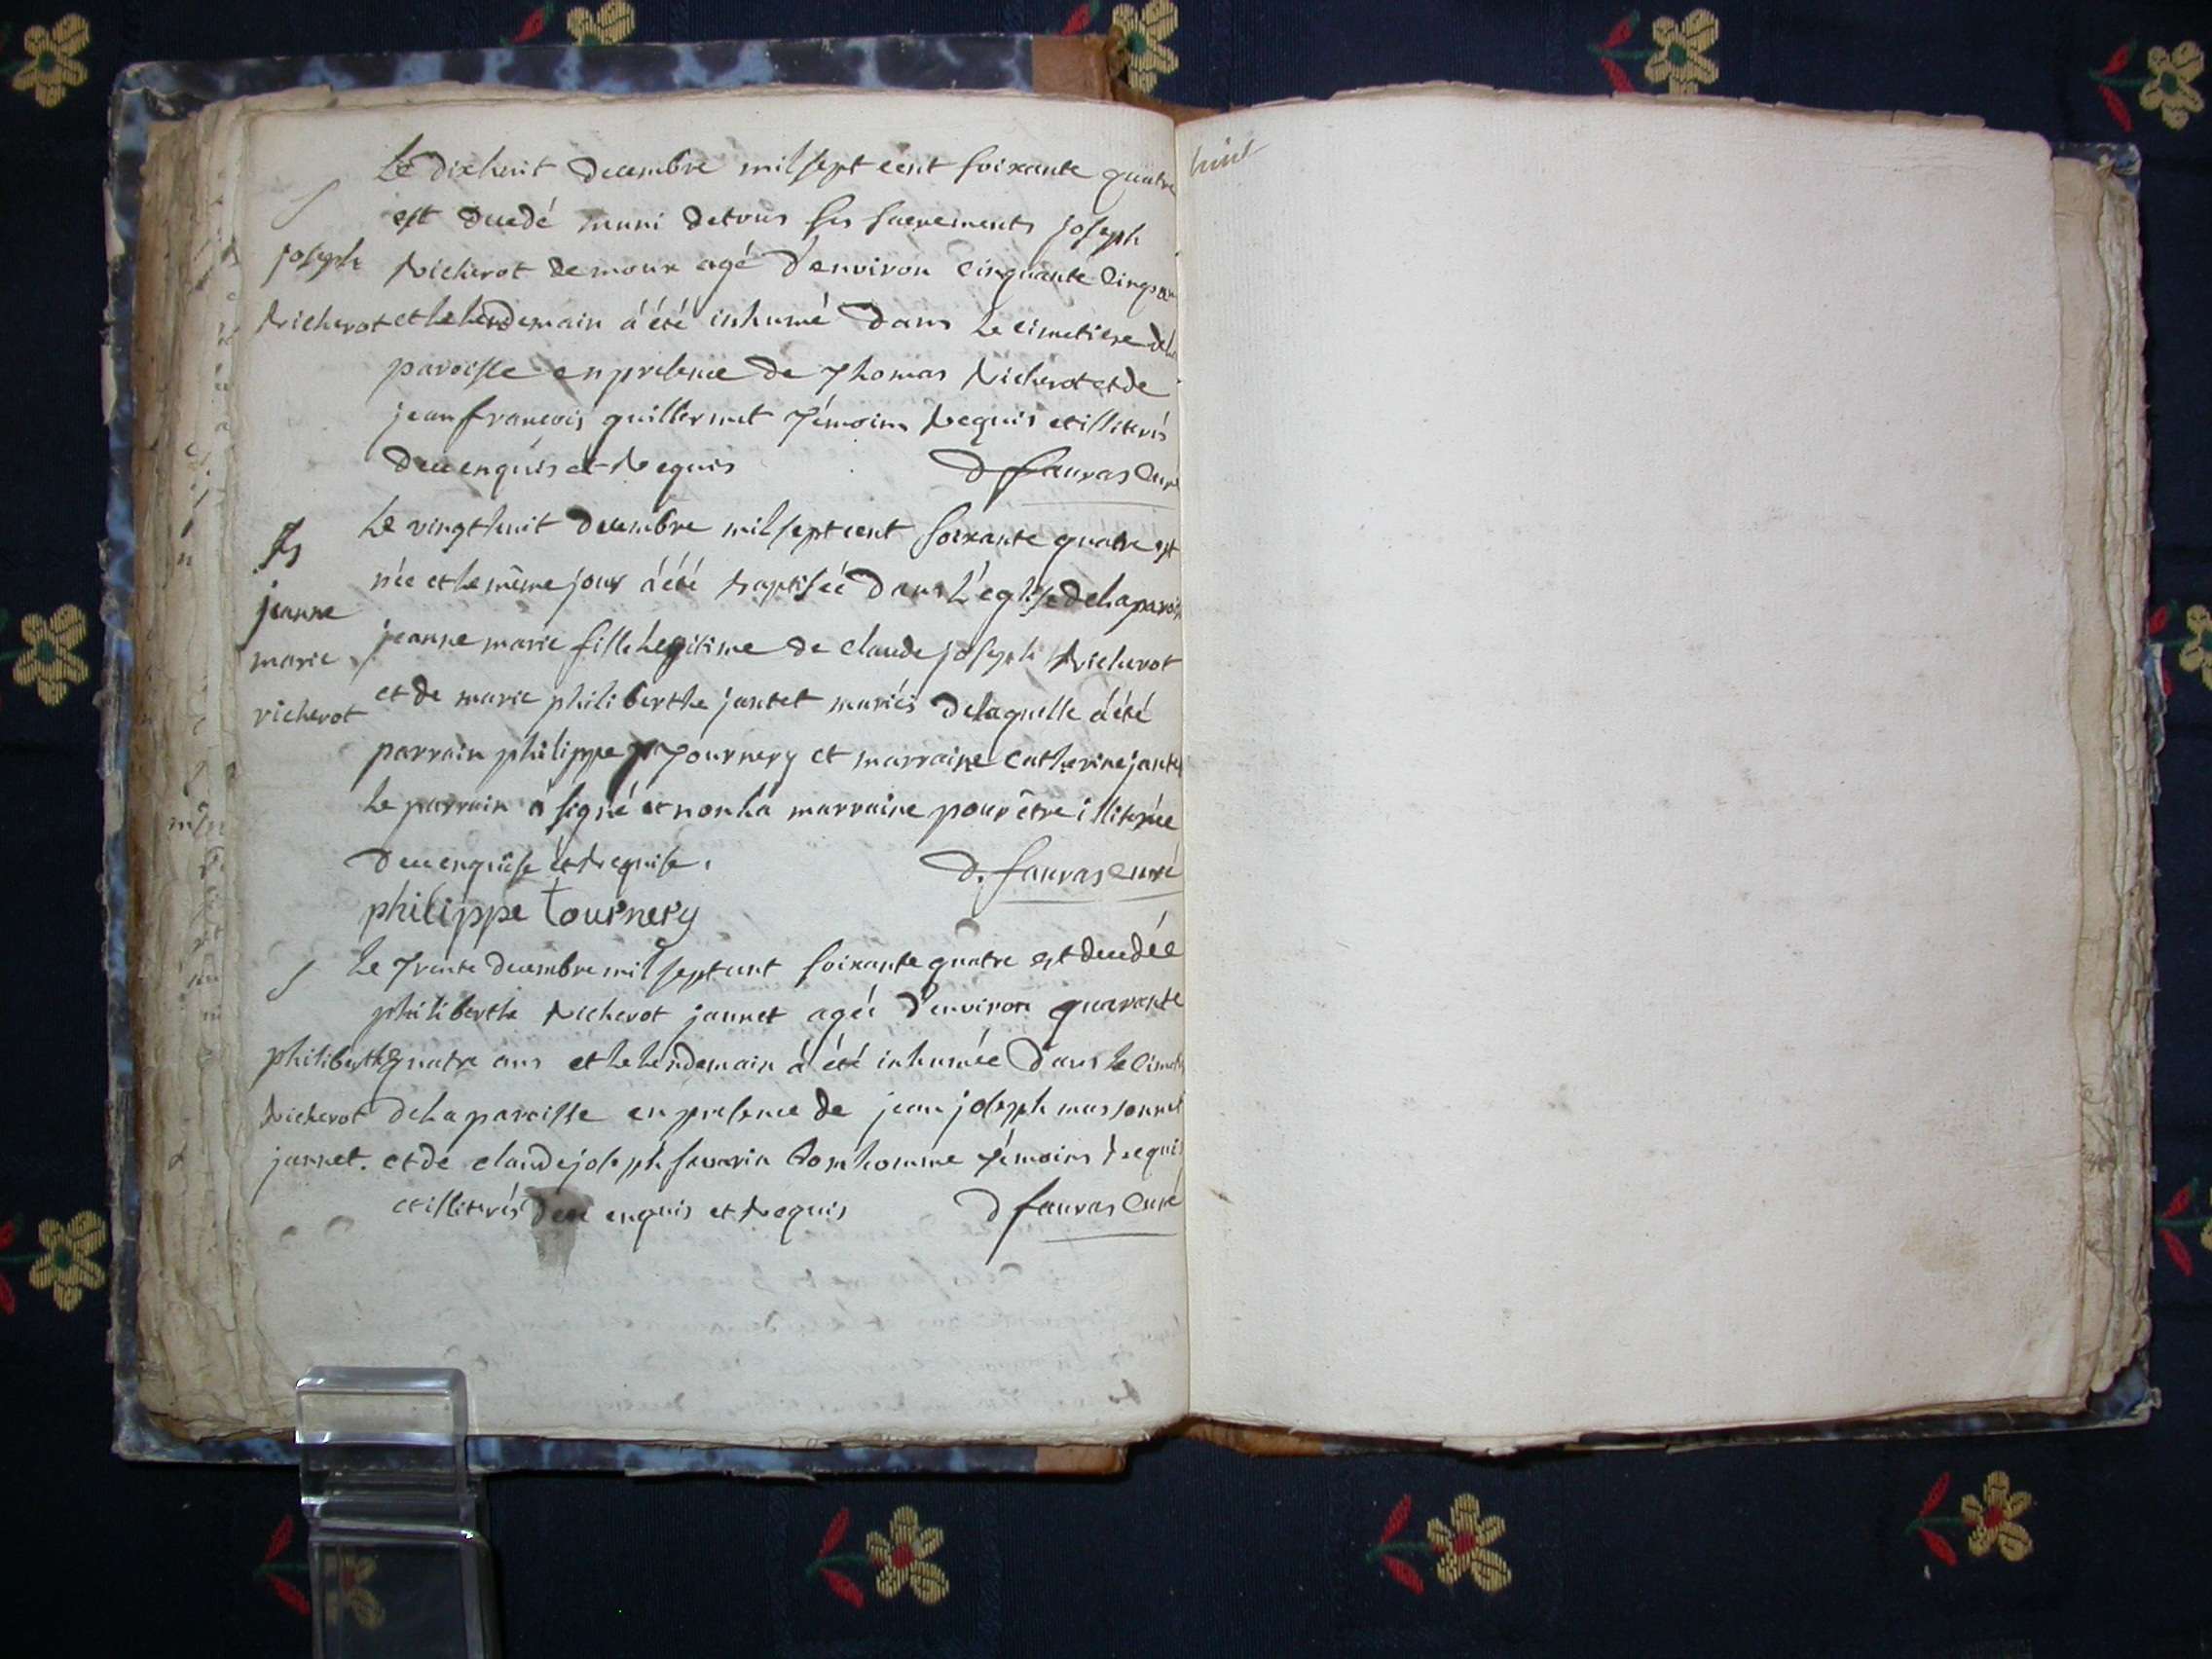 Le dixhuit decembre mil sept cent soixante quatre
est decedé muni de tous ses sacrements joseph
joseph
Richerot de moux agé d'environ cinquante cinq ans
Richerot
et le lendemain à été inhumé dans le cimetiere de la
paroisse en presence de Thomas Richerot et de
jean françois guillermet témoins Requis et illiterés
de ce enquis et Requis
D fauvas Curé
Le vingt huit decembre mil sept cent soixante quatre est
née et le même jour à été baptisée dans L'église de la paroisse
jeanne
marie
richerot
jeanne marie fille legitime de claude joseph Richerot
et de marie philiberthe jantet mariés de laquelle à été
parrain philippe Tournery et marraine catherine jantet
le parrain à signé et non la marraine pour être illiterée
de ce enquise et Requise.
D. fauvas curé
philippe tournery
Le Trente decembre mil sept cent soixante quatre est decedée
philiberthe Richerot jannet agée d'environ quarante
philiberthe
quatre ans et le lendemain à été inhumée dans le cimet
Richerot
jannet.
de la paroisse en presence de jean joseph massonnet
et de claude joseph bonhomme témoins Requis
et illiterés de ce enquis et Requis
D fauvas Curé
huit